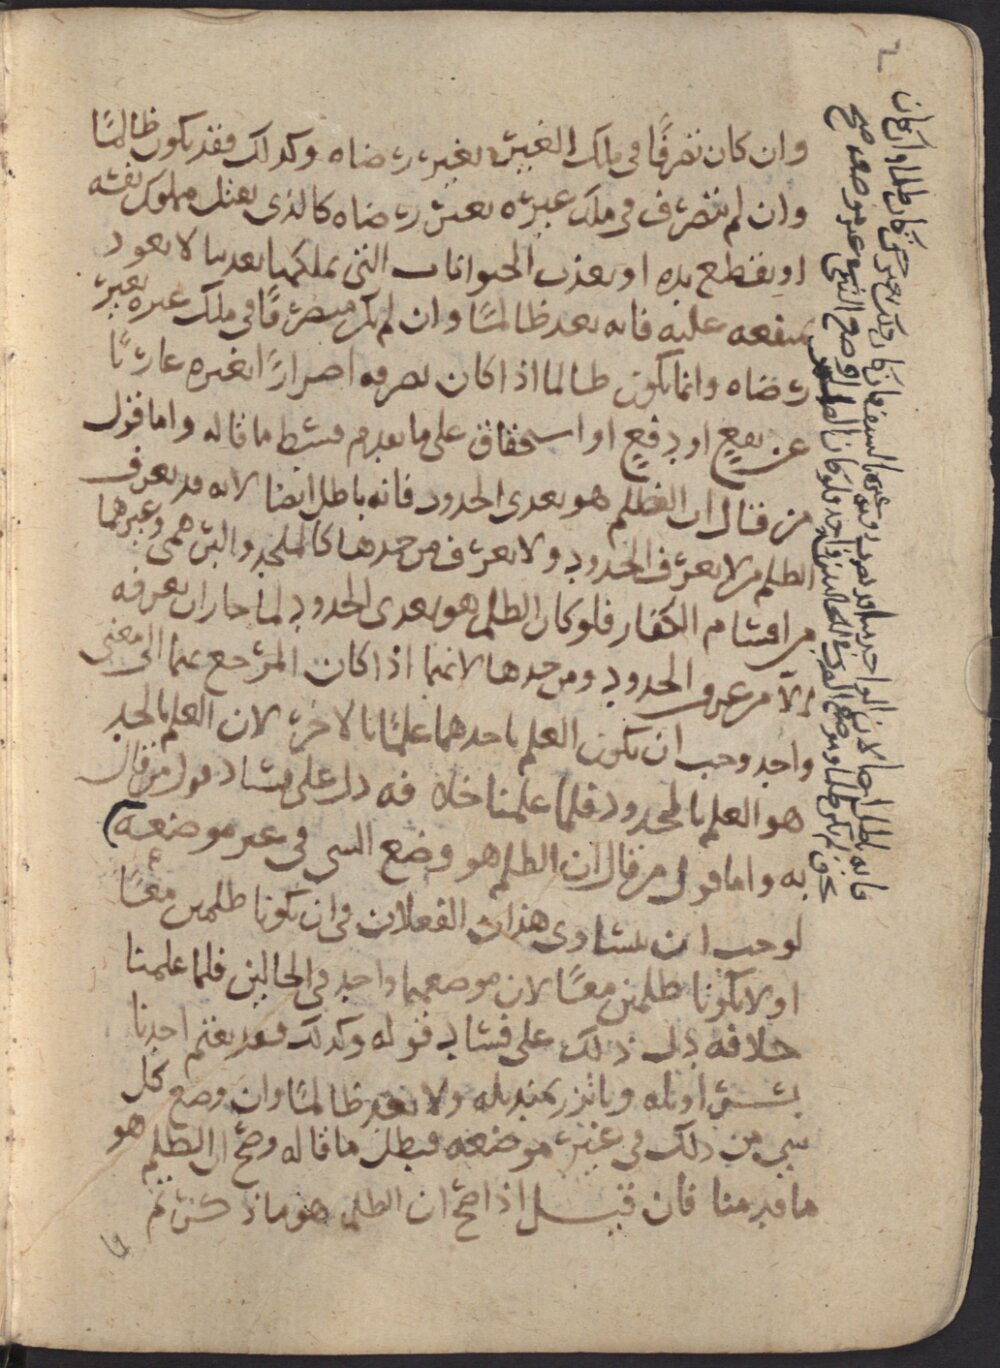 وان كان تصرفًا في ملك الغير بغير رضاه وكذلك فقد يكون ظالمًا
وان لم يتصرف في ملك غيره بغير رضاه كالذي يقتل مملوك نفسه
او يقطع يده او يعذب الحيوانات التي يملكها بعذيبا لا يعود
بمنفعه عليه فانه يعد ظالمًا وان لم يكن متصرفًا في ملك غيره بغير
رضاه وانما يكون ظالما اذا كان تصرفه اضرارًا بغيره عاريًا
عن نفعٍ او دفعٍ او استحقاق على ما تقدم فسقط ما قاله واما قول
من قال ان الظلم هو تعدي الحدود فانه باطل ايضا لانه قد يعرف
الظلم من لا يعرف الحدود ولا يعرف من حدها كالملحد والبرهمي وغيرهما
من اقسام الكفار فلو كان الظلم هو تعدي الحدود لما جاز ان يعرفه
الا من عرف الحدود ومن حدها لانهما اذا كان المرجع بهما الى معنى
واحد وجب ان يكون العلم باحدهما علمًا بالاخر لان العلم بالحد
هو العلم بالمحدود فلما علمنا خلافه دل على فساد قول من قال
به واما قول من قال ان الظلم هو وضع الشي في غير موضعه
لوجب ان يتساوى هذان الفعلان في ان يكونا ظلمين معًا
او لا يكونا ظلمين معًا لان موضعهما واحد في الحالين فلما علمنا
خلافه دل ذلك على فساد قوله وكذلك فقد يعتم احدنا
بشقق اويله وياتزر بمنديله ولا يعد ظالمًا وان وضع كل
شي من ذلك في غير موضعه فبطل ما قاله وصح ان الظلم هو
ما قدمنا فان قيل اذا صح ان الظلم هو ما ذكرتم
فانه باطل ايضا لان الواحد منا قد يضرب رقبة غيره بالسيف فان كان ذلك بغير حق كان ظلما وان كان
بحق لم يكن ظلما وموضع الضرب في الحالين واحد فلو كان الظلم هو وضع الشي في غير موضعه صح